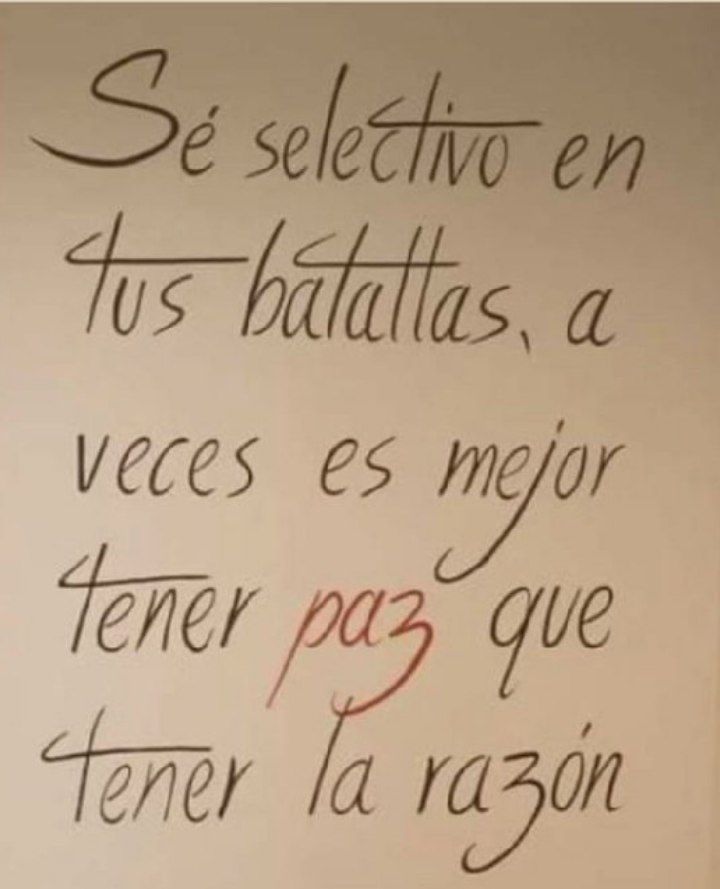 Sé selectivo en
tus batallas, a
veces es mejor
tener paz que
tener la razón